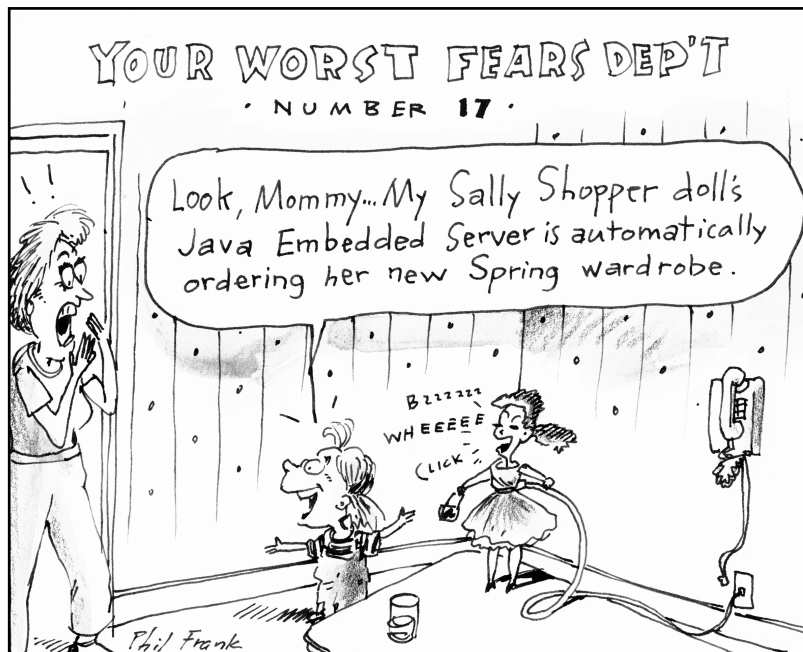 YOUR WORST FEARS DEP'T
• NUMBER 17 •
! !
Look, Mommy...My Sally Shopper doll's
Java Embedded Server is automatically
ordering her new Spring wardrobe.
BZZZZZZ
WHEEEEE
CLICK
Phil Frank